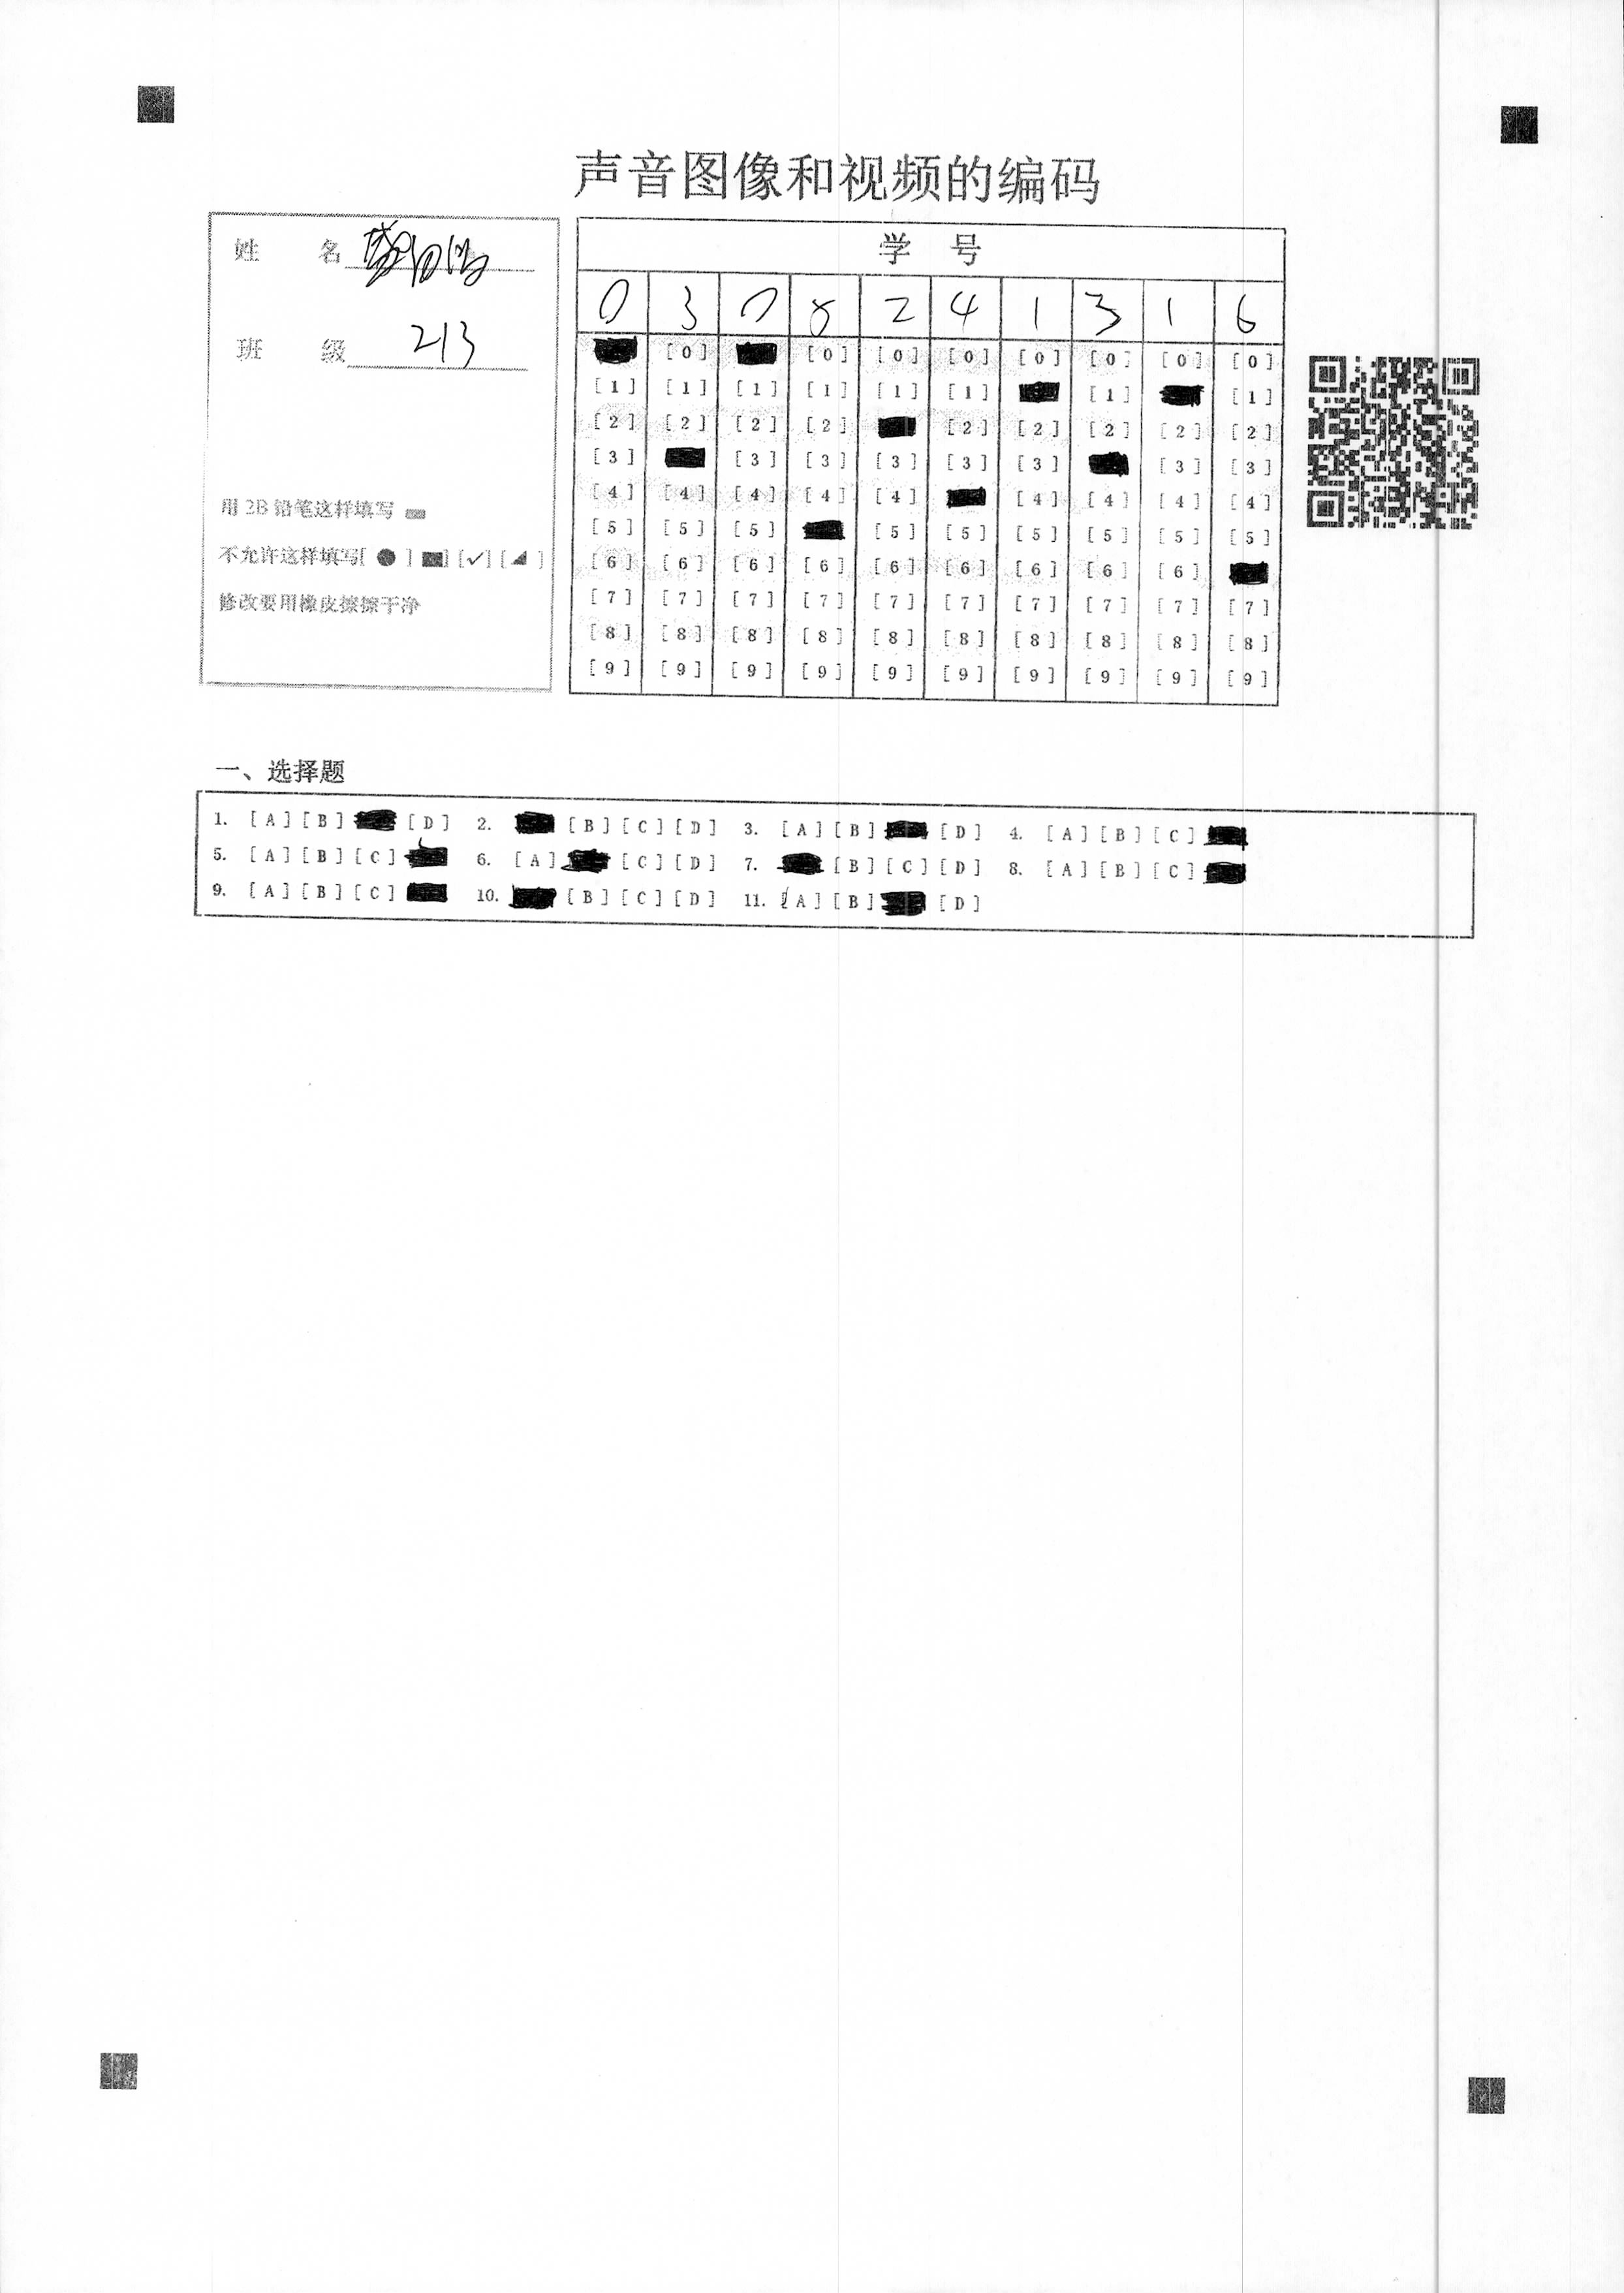 声音图像和视频的编码
姓 名
班 级 213
用 2B 铅笔这样填写
不允许这样填写[ ● ] [■] [✓] [◢ ]
修改要用橡皮擦擦干净
学 号
0 3 0 8 2 4 1 3 1 6
[0] [0] [0] [0] [0] [0] [0] [0]
[1] [1] [1] [1] [1] [1] [1] [1]
[2] [2] [2] [2] [2] [2] [2] [2] [2]
[3] [3] [3] [3] [3] [3] [3] [3]
[4] [4] [4] [4] [4] [4] [4] [4] [4]
[5] [5] [5] [5] [5] [5] [5] [5] [5]
[6] [6] [6] [6] [6] [6] [6] [6] [6]
[7] [7] [7] [7] [7] [7] [7] [7] [7] [7]
[8] [8] [8] [8] [8] [8] [8] [8] [8] [8]
[9] [9] [9] [9] [9] [9] [9] [9] [9] [9]
一、选择题
1. [A] [B] [D] 2. [B] [C] [D] 3. [A] [B] [D] 4. [A] [B] [C]
5. [A] [B] [C] 6. [A] [C] [D] 7. [B] [C] [D] 8. [A] [B] [C]
9. [A] [B] [C] 10. [B] [C] [D] 11. [A] [B] [D]